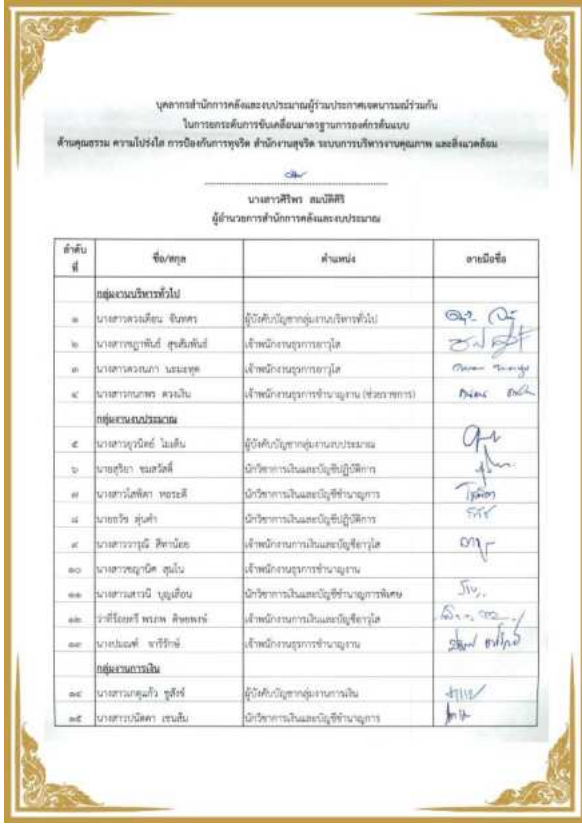 บุคลากรสำนักการคลังและงบประมาณผู้ร่วมประกาศเจตนารมณ์ร่วมกัน
ในการยกระดับการขับเคลื่อนมาตรฐานการองค์กรต้นแบบ
ด้านคุณธรรม ความโปร่งใส การป้องกันการทุจริต สำนักงานสุจริต ระบบการบริหารงานคุณภาพ และสิ่งแวดล้อม
นางสาวศิริพร สมบัติศิริ
ผู้อำนวยการสำนักการคลังและงบประมาณ
ลำดับที่ ชื่อ/สกุล ตำแหน่ง ลายมือชื่อ
กลุ่มงานบริหารทั่วไป
๑ นางสาวดวงเดือน จันทศร ผู้บังคับบัญชากลุ่มงานบริหารทั่วไป
๒ นางสาวชฎาพันธ์ สุขสัมพันธ์ เจ้าพนักงานธุรการอาวุโส
๓ นางสาวดวงนภา เจ้าพนักงานธุรการอาวุโส
๔ นางสาวกนกพร ดวงเงิน เจ้าพนักงานธุรการชำนาญงาน (ช่วยราชการ)
กลุ่มงานงบประมาณ
๕ นางสาวยุวนิตย์ ผู้บังคับบัญชากลุ่มงานงบประมาณ
๖ นายสุริยา ชมสวัสดิ์ นักวิชาการเงินและบัญชีปฏิบัติการ
๗ นางสาวโสพิตา หอระดี นักวิชาการเงินและบัญชีชำนาญการ
๘ นายธวัช ตุ่นคำ นักวิชาการเงินและบัญชีปฏิบัติการ
๙ นางสาววารุณี สีหาน้อย เจ้าพนักงานการเงินและบัญชีอาวุโส
๑๐ นางสาวชญานิศ สุมโน เจ้าพนักงานธุรการชำนาญงาน
๑๑ นางสาวเสาวนี บุญเลื่อน นักวิชาการเงินและบัญชีชำนาญการพิเศษ
๑๒ ว่าที่ร้อยตรี พรภพ เจ้าพนักงานการเงินและบัญชีอาวุโส
๑๓ นางปณณฑ์ จารีรักษ์ เจ้าพนักงานธุรการชำนาญงาน
กลุ่มงานการเงิน
๑๔ นางสาวเกตุแก้ว ชูสังข์ ผู้บังคับบัญชากลุ่มงานการเงิน
๑๕ นางสาวปนัดดา เซนส้ม นักวิชาการเงินและบัญชีชำนาญการ